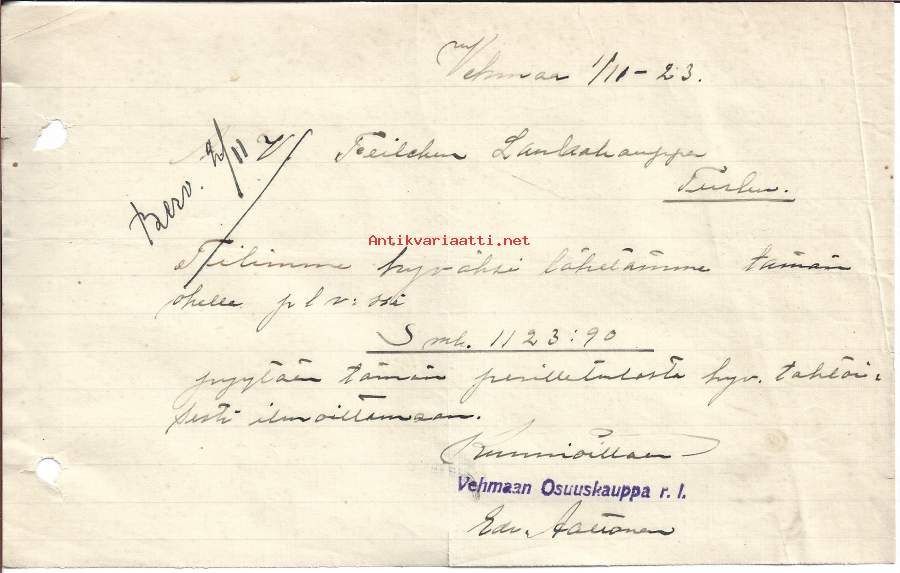 Vehmaa 1/11-23.
Besv. 2/11
Laukkakauppa
Turku.
Antikvariaatti.net
Tilimme hyväksi lähetämme tämän
ohella p l v: ssä
Smk. 1123:90
pyytäen tämän perilletulosta hyv. tahtoi-
sesti ilmoittamaan.
Kunnioittaen
Vehmaan Osuuskauppa r. l.
Edv. Aaltonen